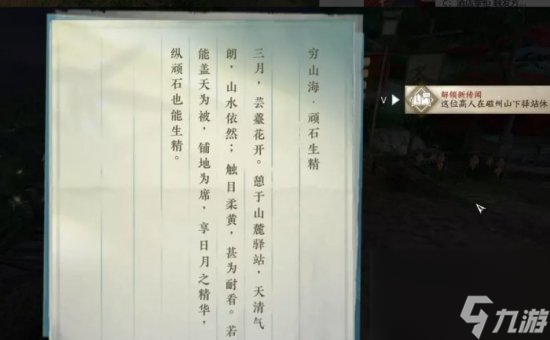 穷山海·顽石生精
三月，芸薹花开。憩于山麓驿站，天清气
朗，山水依然；触目柔黄，甚为耐看。若
能盖天为被，铺地为席，享日月之精华，
纵顽石也能生精。
V
解锁新传闻
这位高人在磁州山下驿站休
九游